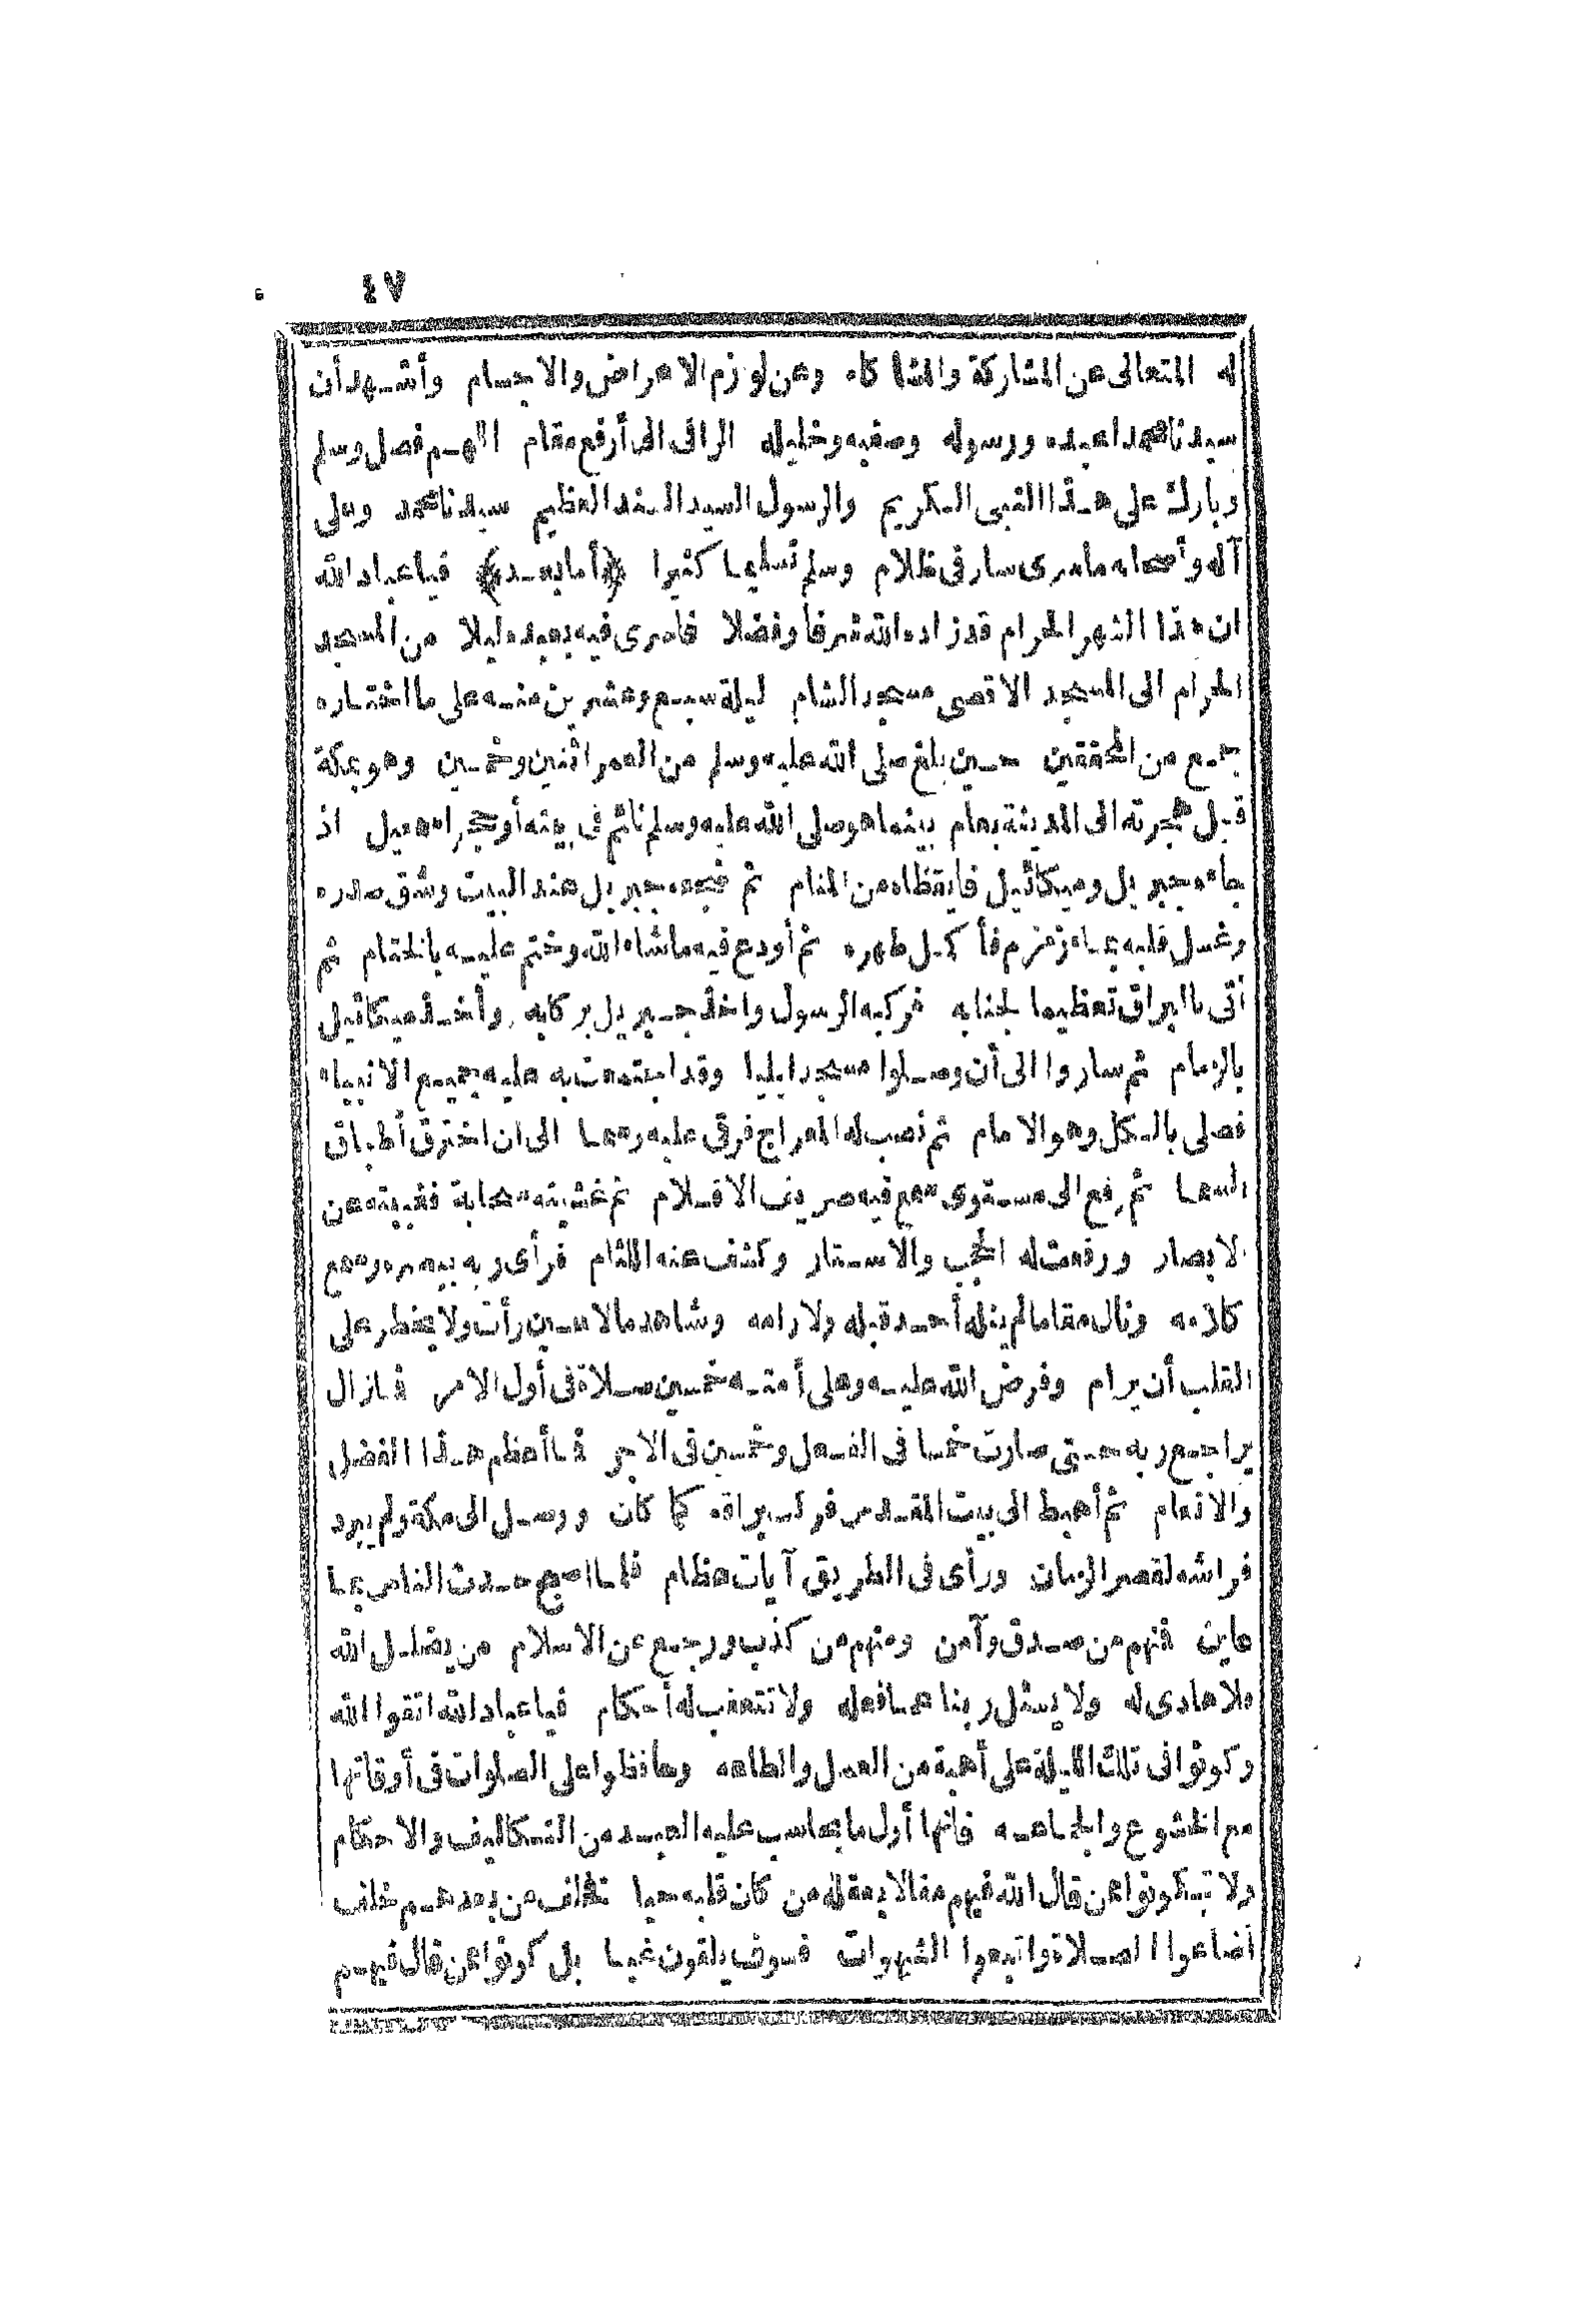 ٤٧
له المتعالى عن المشاركة والمشاكاه وعن لوازم الاعراض والاجسام وأشهد أن
سيدنا محمدا عبده ورسوله وصفيه وخليله الراقى الى أرفع مقام اللهم فصل وسلم
وبارك على هذا النبى الكريم والرسول السيد السند العظيم سيدنا محمد وعلى
آله وأصحابه ماسرى سار فى ظلام وسلم تسليما كثيرا ﴿أما بعد﴾ فيا عباد الله
ان هذا الشهر الحرام قد زاده الله شرفا وفضلا فاسرى فيه بعبده ليلا من المسجد
الحرام الى المسجد الاقصى مسجد الشام ليلة سبع وعشرين منه على ما اختاره
جمع من المحققين حين بلغ صلى الله عليه وسلم من العمر اثنين وخمسين وهو بمكة
قبل هجرته الى المدينة بعام بينما هو صلى الله عليه وسلم نائم فى بيته أو حجر اسمعيل اذ
جاءه جبريل وميكائيل فايقظاه من المنام ثم ضجعه جبريل عند البيت وشق صدره
وغسل قلبه بماء زمزم فأكمل طهره ثم أودع فيه ماشاء الله وختم عليه بالختام ثم
أتى بالبراق تعظيما لجنابه فركبه الرسول واخذ جبريل بركابه وأخذ ميكائيل
بالزمام ثم ساروا الى أن وصلوا مسجد ايليا وقد اجتمعت به عليه جميع الانبياء
فصلى بالكل وهو الامام ثم نصب له المعراج فرقى عليه وسما الى ان اخترق أطباق
السما ثم رفع الى مستوى سمع فيه صريف الاقلام ثم غشيته سحابة فغيبته عن
لابصار ورفعت له الحجب والاستار وكشف عنه اللثام فرأى ربه ببصره وسمع
كلامه ونال مقاما لم ينله أحد قبله ولا رامه وشاهد مالا عين رأت ولا يخطر على
القلب أن يرام وفرض الله عليه وعلى أمته خمسين صلاة فى أول الامر فمازال
يراجع ربه حتى صارت خمسا فى الفعل وخمسين فى الاجر فما أعظم هذا الفضل
والانعام ثم أهبط الى بيت المقدس فركب براقه كما كان ووصل الى مكة ولم يبرد
فراشه لقصر الزمان ورأى فى الطريق آيات عظام فلما اصبح حدث الناس بما
عاين فمنهم من صدق وآمن ومنهم من كذب ورجع عن الاسلام من يضلل الله
فلا هادى له ولا يسئل ربنا عما فعله ولا تتعقب له أحكام فيا عباد الله اتقوا الله
وكونوا فى تلك الليلة على أهبة من العمل والطاعه وحافظوا على الصلوات فى أوقاتها
مع الخشوع والجماعه فانها أول ما يحاسب عليه العبد من التكاليف والاحكام
ولا تكونوا ممن قال الله فيهم مقالا يعقله من كان قلبه حيا فخلف من بعدهم خلف
أضاعوا الصلاة واتبعوا الشهوات فسوف يلقون غيا بل كونوا ممن قال فيهم